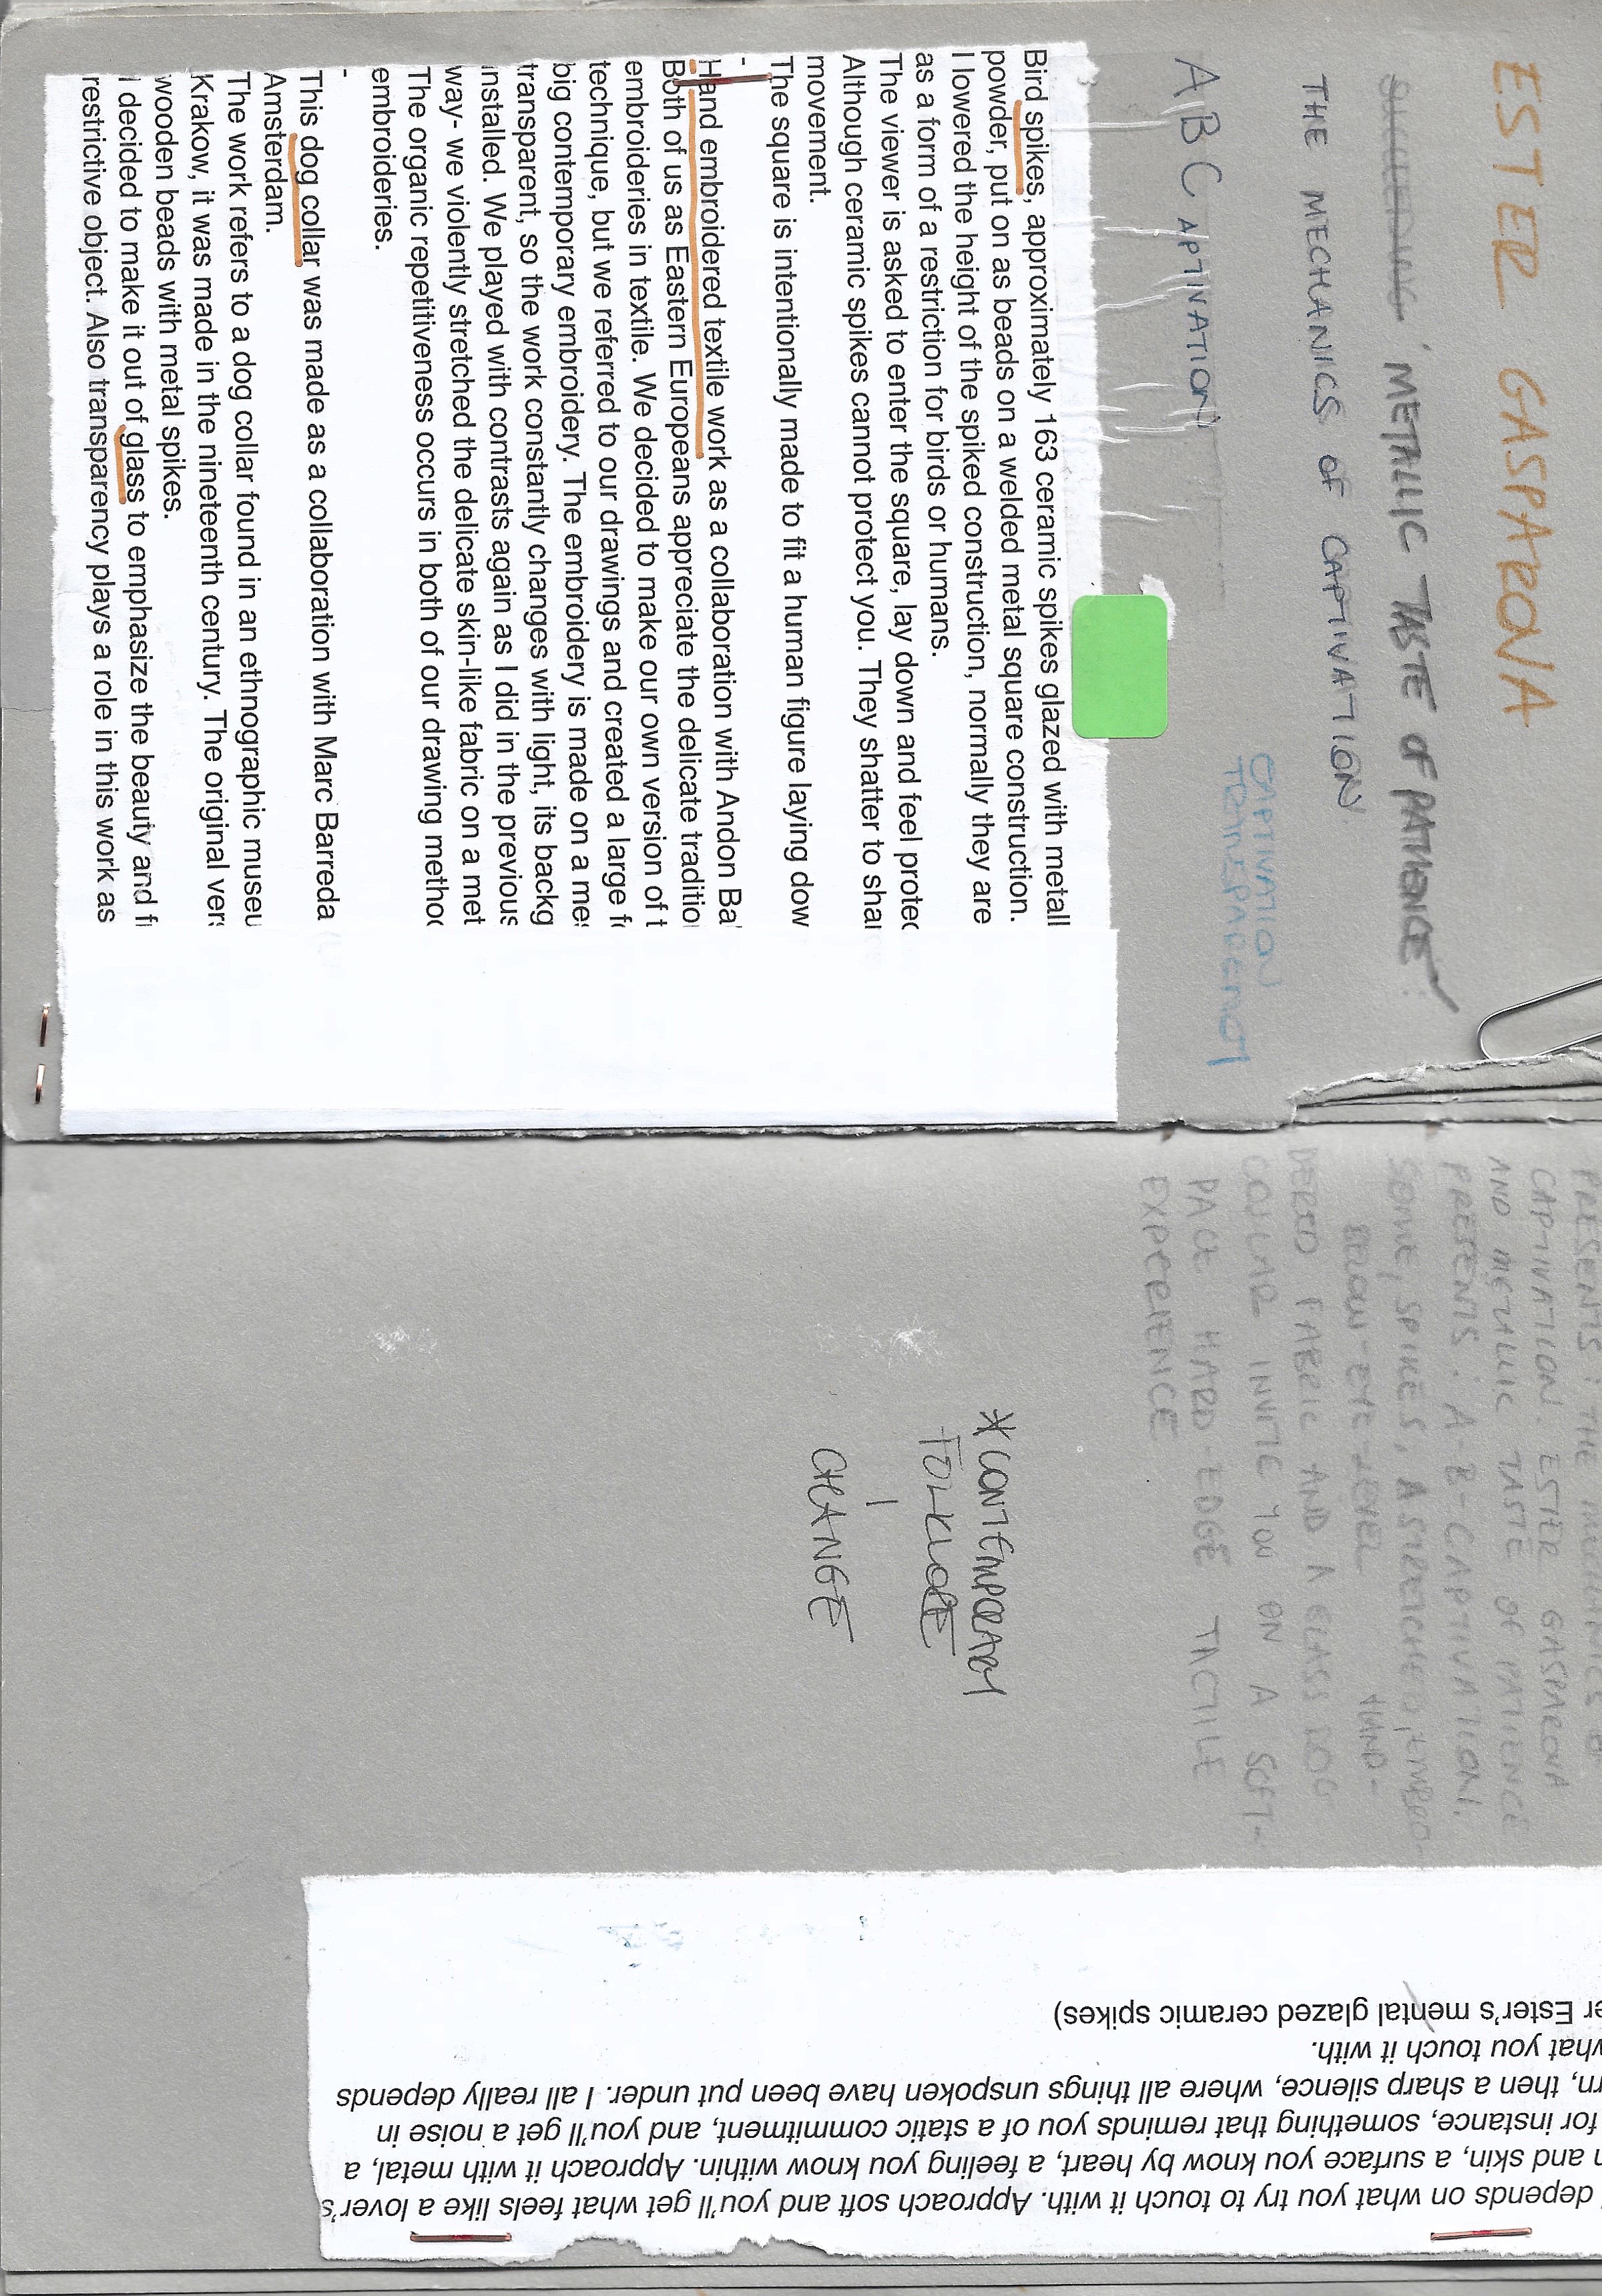 ESTER GASPAROVA
'METALLIC TASTE OF PATIENCE'
THE MECHANICS OF CAPTIVATION.
CAPTIVATION
TRANSPARENCY
A B C APTIVATION
Bird spikes, approximately 163 ceramic spikes glazed with metall
powder, put on as beads on a welded metal square construction.
I lowered the height of the spiked construction, normally they are
as a form of a restriction for birds or humans.
The viewer is asked to enter the square, lay down and feel protec
Although ceramic spikes cannot protect you. They shatter to shar
movement.
The square is intentionally made to fit a human figure laying dow
-
Hand embroidered textile work as a collaboration with Andon Ba
Both of us as Eastern Europeans appreciate the delicate traditio
embroideries in textile. We decided to make our own version of t
technique, but we referred to our drawings and created a large fo
big contemporary embroidery. The embroidery is made on a mes
transparent, so the work constantly changes with light, its backg
installed. We played with contrasts again as I did in the previous
way- we violently stretched the delicate skin-like fabric on a met
The organic repetitiveness occurs in both of our drawing method
embroideries.
-
This dog collar was made as a collaboration with Marc Barreda
Amsterdam.
The work refers to a dog collar found in an ethnographic museu
Krakow, it was made in the nineteenth century. The original vers
wooden beads with metal spikes.
I decided to make it out of glass to emphasize the beauty and fr
restrictive object. Also transparency plays a role in this work as
PRESENTS: THE MECHANICS OF
CAPTIVATION. ESTER GASPAROVA
AND METALLIC TASTE OF PATIENCE
PRESENTS: A-B-CAPTIVATION.
SOME, SPIKES, A STRETCHED, EMBRO-
BELOW-EYE-LEVEL HAND-
DERED FABRIC AND A GLASS DOG
COLLAR INVITE YOU ON A SOFT-
PACE HARD-EDGE TACTILE
EXPERIENCE
*CONTEMPORARY
FOLKLORE
|
CHANGE
depends on what you try to touch it with. Approach soft and you'll get what feels like a lover's
and skin, a surface you know by heart, a feeling you know within. Approach it with metal, a
for instance, something that reminds you of a static commitment, and you'll get a noise in
rn, then a sharp silence, where all things unspoken have been put under. I all really depends
what you touch it with.
er Ester's mental glazed ceramic spikes)